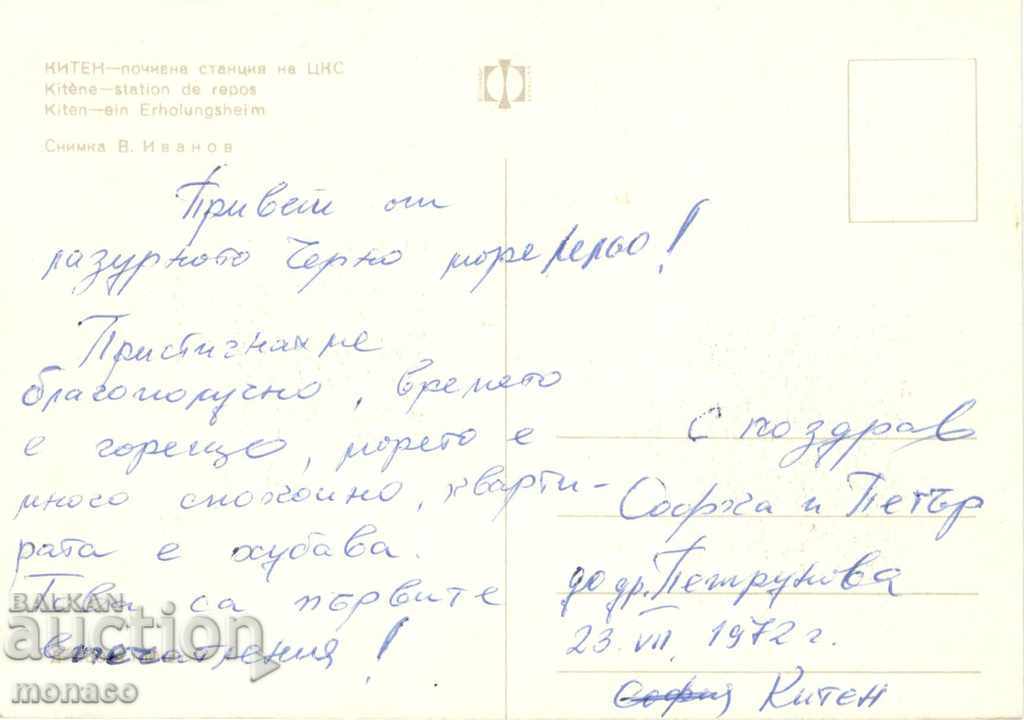 КИТЕН—почивна станция на ЦКС
Kitène—station de repos
Kiten—ein Erholungsheim
Снимка В. Иванов
Привет от
лазурното Черно море Лельо!
Пристигнахме
благополучно, времето
е горещо, морето е
много спокойно, кварти-
рата е хубава.
Това са първите
впечатления!
С поздрав
Софка и Петър
до др. Петрунова
23. VII. 1972 г.
София Китен
BALKAN
auction
monaco